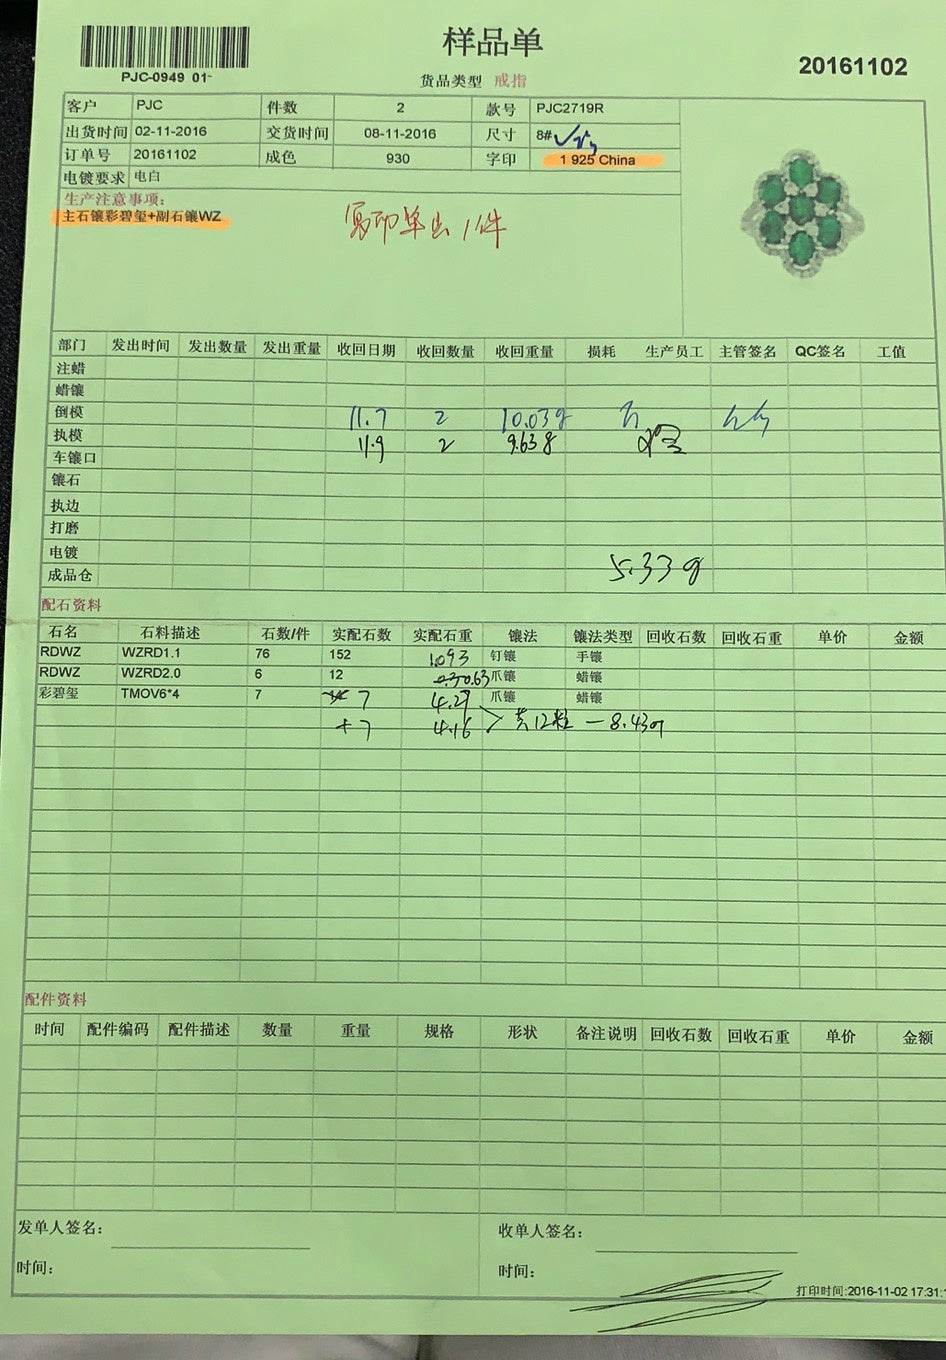 样品单
PJC-0949 01~
货品类型 戒指
20161102
客户 PJC 件数 2 款号 PJC2719R
出货时间 02-11-2016 交货时间 08-11-2016 尺寸 8#
订单号 20161102 成色 930 字印 1 925 China
电镀要求 电白
生产注意事项:
主石镶彩碧玺+副石镶WZ
复印单出1件
部门 发出时间 发出数量 发出重量 收回日期 收回数量 收回重量 损耗 生产员工 主管签名 QC签名 工值
注蜡
蜡镶
倒模 11.7 2 10.03g
执模 11.9 2 9.63g
车镶口
镶石
执边
打磨
电镀
成品仓 5.33g
配石资料
石名 石料描述 石数/件 实配石数 实配石重 镶法 镶法类型 回收石数 回收石重 单价 金额
RDWZ WZRD1.1 76 152 1.093 钉镶 手镶
RDWZ WZRD2.0 6 12 0.63 爪镶 蜡镶
彩碧玺 TMOV6*4 7 7 4.27 爪镶 蜡镶
+7 4.16 共12粒 — 8.43g
配件资料
时间 配件编码 配件描述 数量 重量 规格 形状 备注说明 回收石数 回收石重 单价 金额
发单人签名: 收单人签名:
时间: 时间:
打印时间:2016-11-02 17:31: